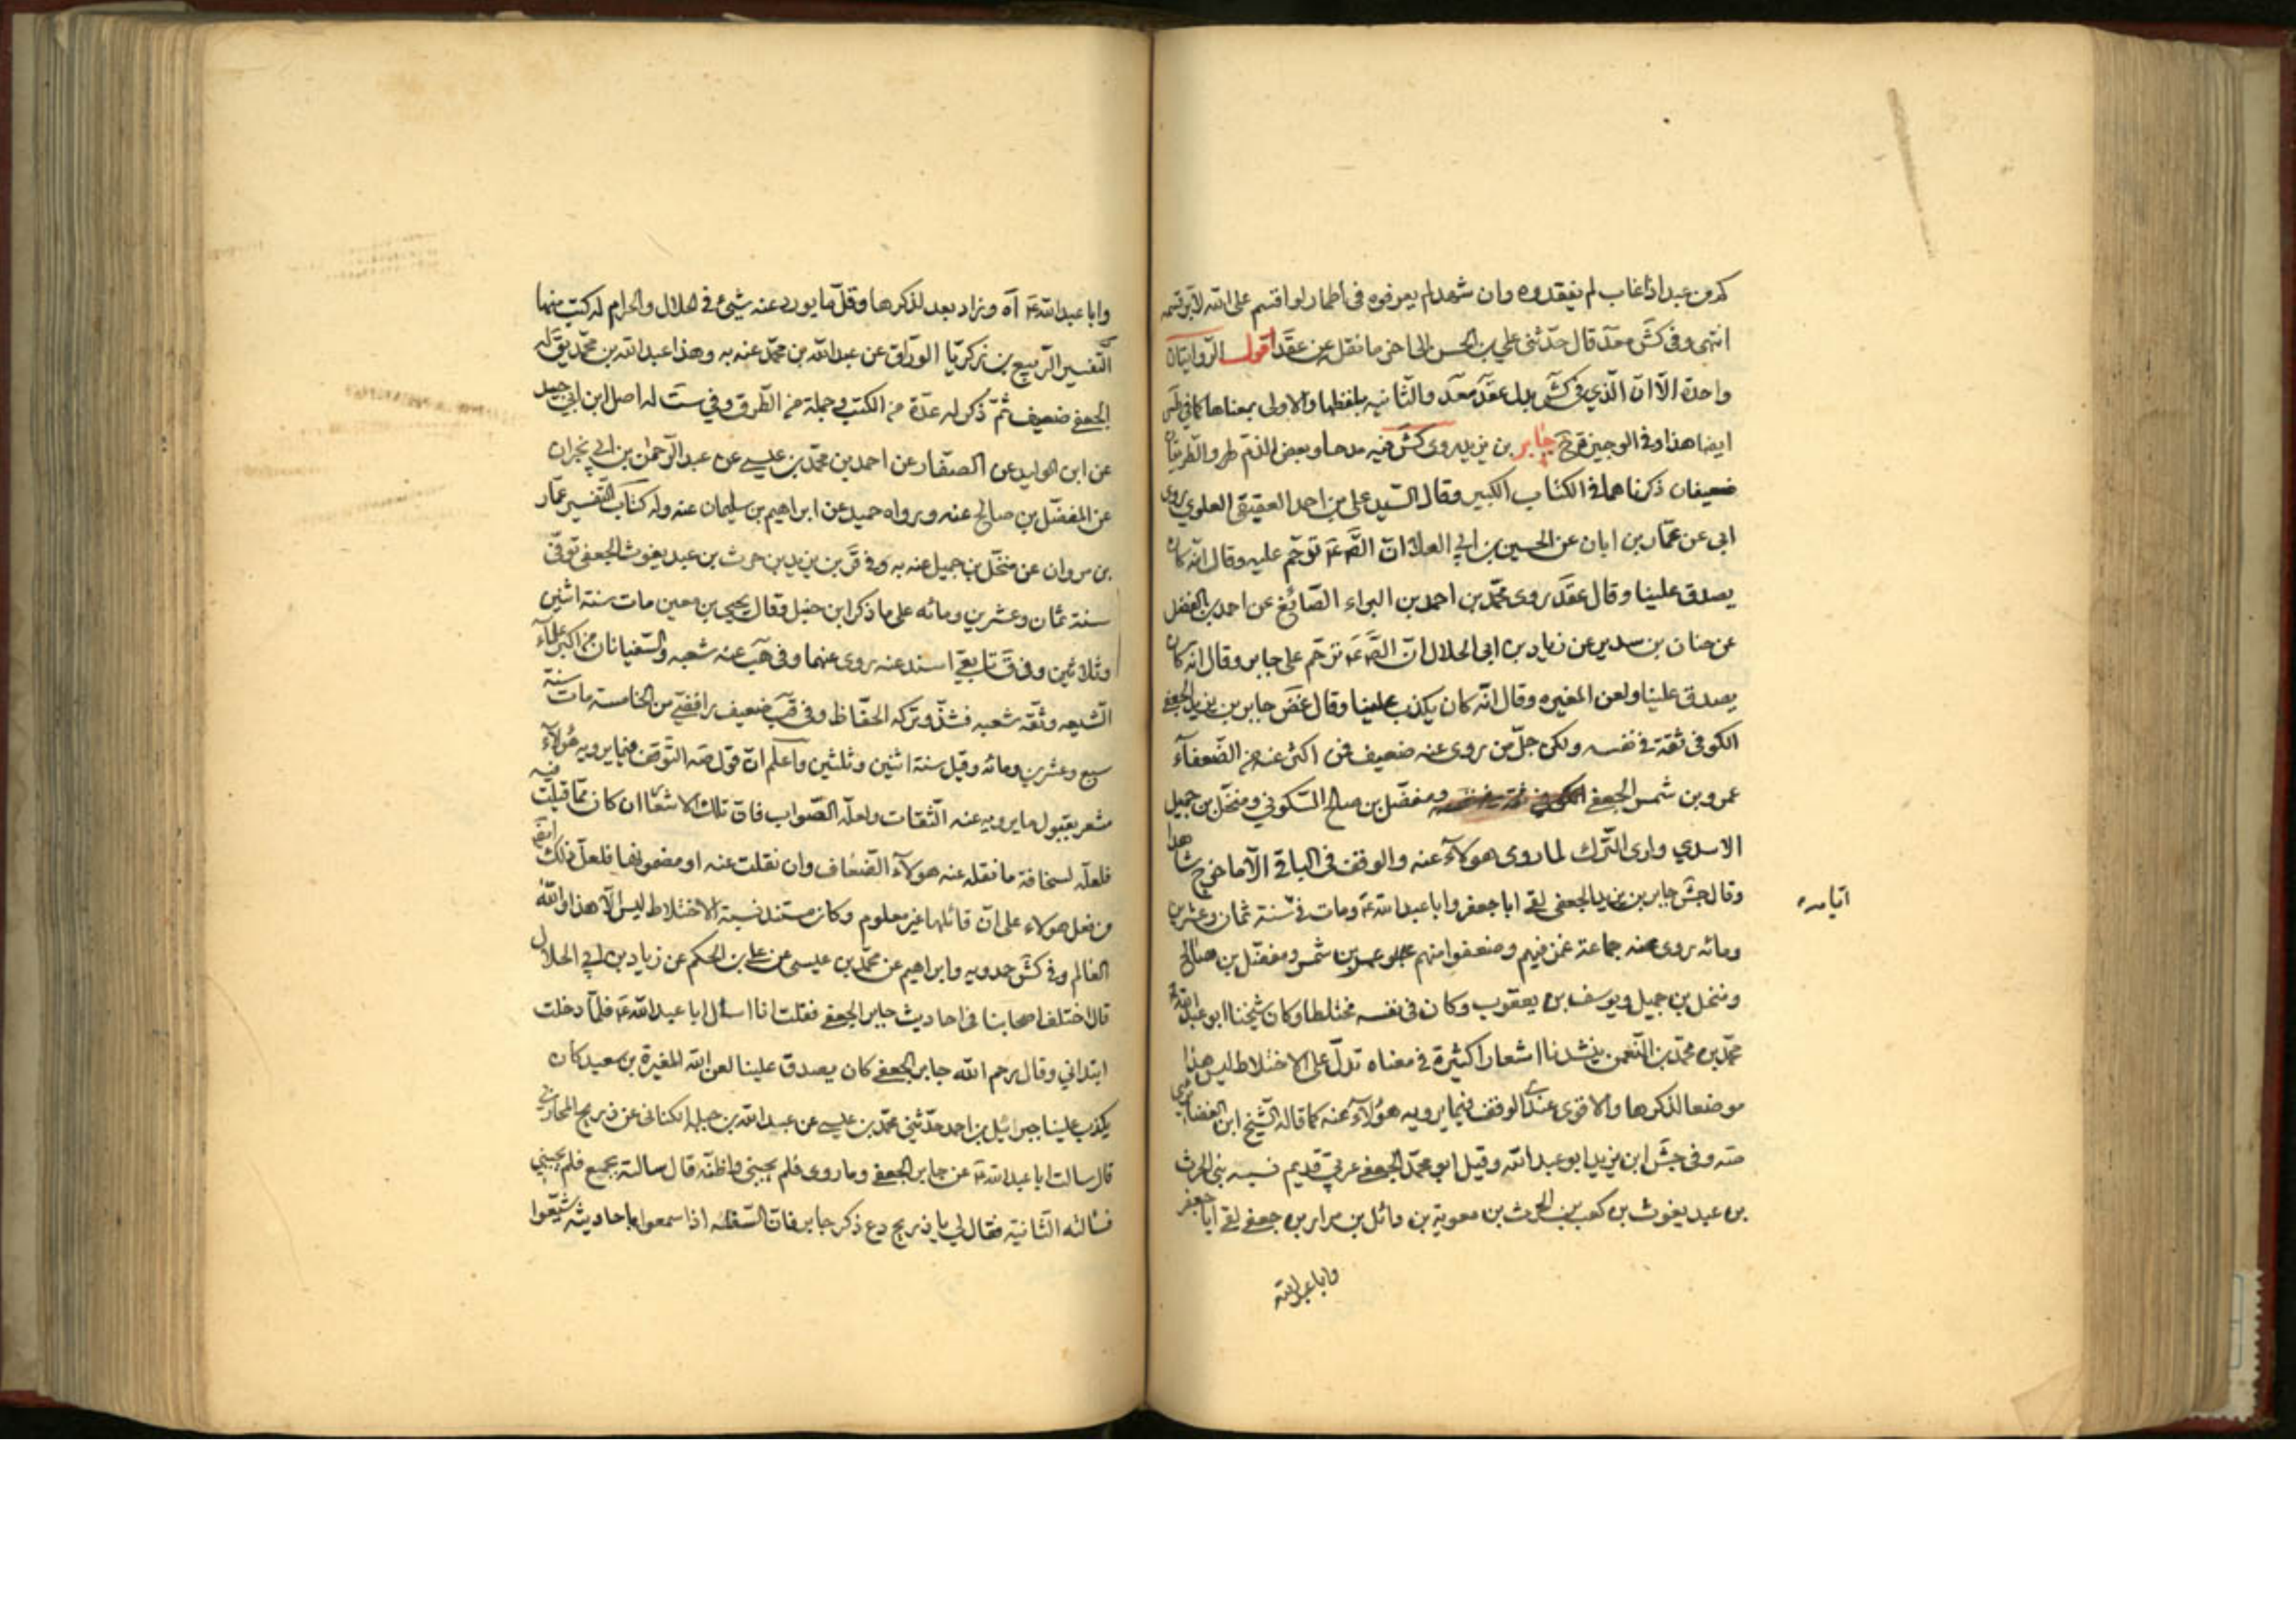 كم من عبد اذا غاب لم يفقدوه وان شهد لم يعرفوه فى اطمار لو اقسم على الله لابر قسمه
انتهى وفى كش معد قال حدّثنى علي بن الحسن الى اخر ما نقل عن عقد اقول الروايتان
واحدة الّا انّ الّذي فى كش بدل عقد معد والثّانيه بلفظها والاولى بمعناها كما فى طس
ايضا هذا وفى الوجيزة ح جابر بن يزيد روى كش فيه مدحا وبعض الذم ظم والطريقان
ضعيفان ذكرناهما فى الكتاب الكبير وقال السّيد على بن احمد العقيقى العلوي روى
ابى عن عمّار بن ابان عن الحسين بن ابي العلا انّ الصّ ع ترحّم عليه وقال انّه كان
يصدق علينا وقال عقد روى محمّد بن احمد بن البراء الصّائغ عن احمد بن الفضل
عن حنان بن سدير عن زياد بن ابى الحلال انّ الصّ ع ترحّم على جابر وقال انّه كان
يصدق علينا ولعن المغيره وقال انّه كان يكذب علينا وقال غض جابر بن يزيد الجعفى
الكوفى ثقة فى نفسه ولكن جلّ من روى عنه ضعيف فمن اكثر عنه من الضّعفآء
عمرو بن شمر الجعفى ومفضّل بن صالح السّكوني ومنخّل بن جميل
الاسدي وارى التّرك لما روى هولآء عنه والوقف فى الباقى الّا ما خرج شاهدا
وقال جش جابر بن يزيد الجعفى لقى ابا جعفر وابا عبد الله ع ومات فى سنة ثمان وعشرين
ايّامه
ومائه روى عنه جماعة غمز فيهم وضعفوا منهم عمرو بن شمر ومفضّل بن صالح
ومنخل بن جميل ويوسف بن يعقوب وكان فى نفسه مختلطا وكان شيخنا ابو عبد الله
محمّد بن محمّد بن النّعمن ينشدنا اشعارا كثيرة فى معناه تدلّ على الاختلاط ليس هذا
موضعا لذكرها والاقوى عندى الوقف فيما يرويه هؤلآء عنه كما قاله الشّيخ ابن الغضايرى
صه وفى جش ابن يزيد ابو عبد الله وقيل ابو محمّد الجعفى عربي قديم نسبه بنى الحرث
بن عبد يغوث بن كعب بن الحرث بن معوية بن وائل بن مرار بن جعفى لقى ابا جعفر
وابا عبد الله
وابا عبد الله ع اه وزاد بعد لذكرها وقلّ ما يورد عنه شيئ فى الحلال والحرام له كتب منها
التّفسير الرّبيع بن زكريّا الورّاق عن عبد الله بن محمّد عنه به وهذا عبد الله بن محمّد يق له
الجعفى ضعيف ثمّ ذكر له عدّة من الكتب وجملة من الطّرق وفي ست له اصل ابن ابي جيد
عن ابن الوليد عن الصفّار عن احمد بن محمّد بن عيسى عن عبد الرّحمن بن ابي نجران
عن المفضّل بن صالح عنه ورواه حميد عن ابراهيم بن سليمان عنه وله كتاب التّفسير عمّار
بن مروان عن منخّل بن جميل عنه به وفى قر بن يزيد بن حرث بن عبد يغوث الجعفى توفّى
سنة ثمان وعشرين ومائه على ما ذكر ابن حنبل وقال يحيى بن معين مات سنة اثنين
وثلاثين وفى ق تابعيّ اسند عنه روى عنهما وفى هب عنه شعبه والسّفيانان من اكبر علمآء
الشّيعه وثّقه شعبه فشذّ وتركه الحفّاظ وفى قب ضعيف رافضيّ من الخامسة مات سنة
سبع وعشرين ومائه وقيل سنة اثنين وثلثين واعلم انّ قول صه التّوقف فيما يرويه هؤلآء
مشعر بقبول ما يرويه عنه الثّقات ولعلّه الصّواب فانّ تلك الاشعار ان كان ممّا قيلت فيه
فلعلّه لسخافة ما نقله عنه هولآء الضّعاف وان نقلت عنه او مضمونها فلعلّ ذلك ايضا
من فعل هولاء على انّ قائلها غير معلوم وكان مستند نسبة الاختلاط ليس الّا هذا والله
العالم وفى كش حمدويه وابراهيم عن محمّد بن عيسى عن علي بن الحكم عن زياد بن ابي الحلال
قال اختلف اصحابنا فى احاديث جابر الجعفى فقلت انا اسأل ابا عبد الله ع فلمّا دخلت
ابتدانى وقال رحم الله جابر الجعفى كان يصدق علينا لعن الله المغيرة بن سعيد كان
يكذب علينا جبرائيل بن احمد حدّثنى محمّد بن عيسى عن عبد الله بن جبله الكنانى عن ذريح المحاربى
قال سالت ابا عبد الله ع عن جابر الجعفى وما روى فلم يجبنى واظنّه قال سالته بجمع فلم يجبني
فسالته الثّانية فقال لي يا ذريح دع ذكر جابر فانّ السّفلة اذا سمعوا باحاديثه شنّعوا